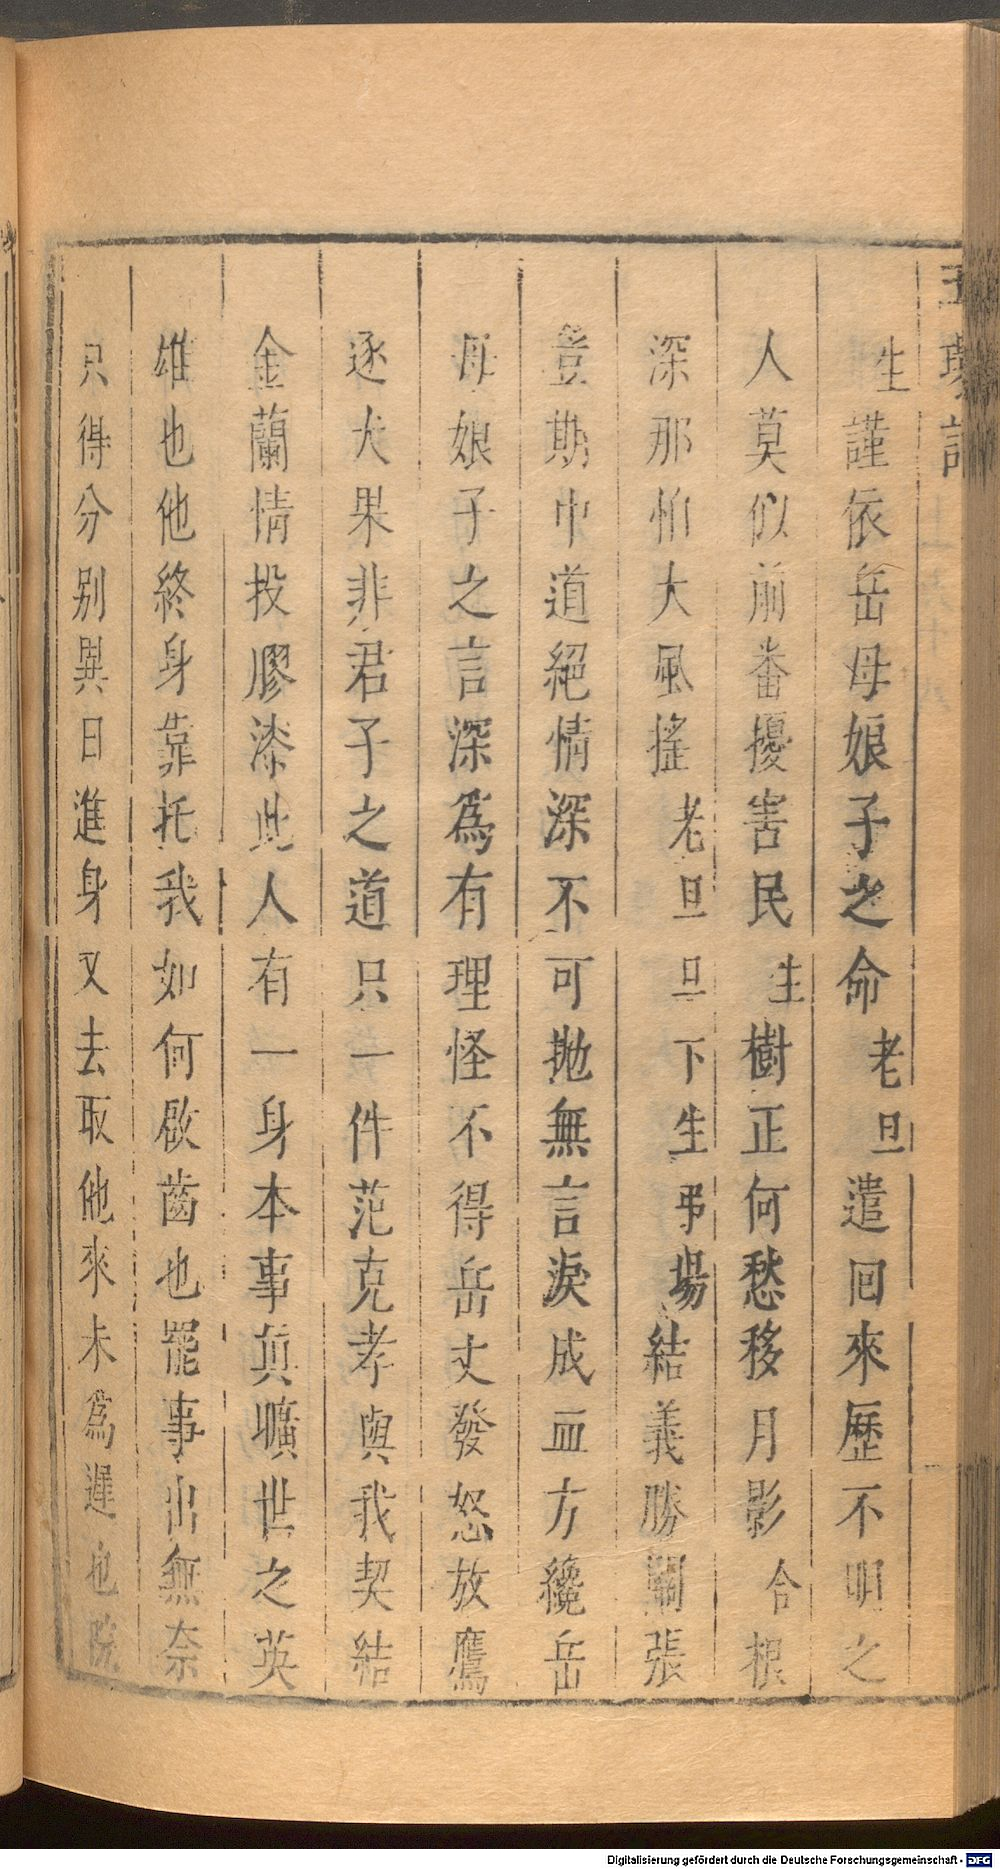 玉環記
生謹依岳母娘子之命老旦遣回來歷不明之
人莫似前番擾害民生樹正何愁移月影合根
深那怕大風搖老旦旦下生弔場結義勝關張
豈期中道絕情深不可拋無言淚成血方纔岳
母娘子之言深爲有理怪不得岳丈發怒放鷹
逐犬果非君子之道只一件范克孝與我契結
金蘭情投膠漆此人有一身本事真曠世之英
雄也他終身靠托我如何啟齒也罷事出無奈
只得分別異日進身又去取他來未爲遲也院
Digitalisierung gefördert durch die Deutsche Forschungsgemeinschaft - DFG